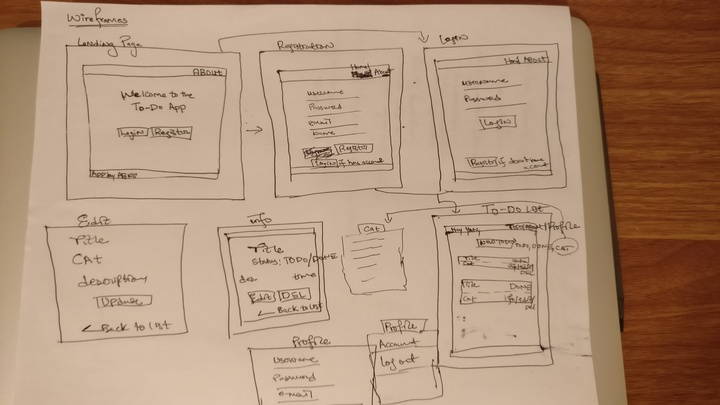 Wireframes
Landing Page
ABOUT
Welcome to the
To-Do App
Login Register
App by
Registration
Home About
Username
Password
email
name
Register
Login if have account
Login
About
Username
Password
Login
Register if don't have
account
Edit
Title
CAT
description
Update
← Back to list
info
Title
Status: TODO/DONE
des time
Edit DEL
← Back to List
CAT
To-Do List
Profile
TODO, DONE, CAT
Title
Cat
DEL
Title DONE
Cat
DEL
Profile
Username
Password
e-mail
Profile
Account
Log out